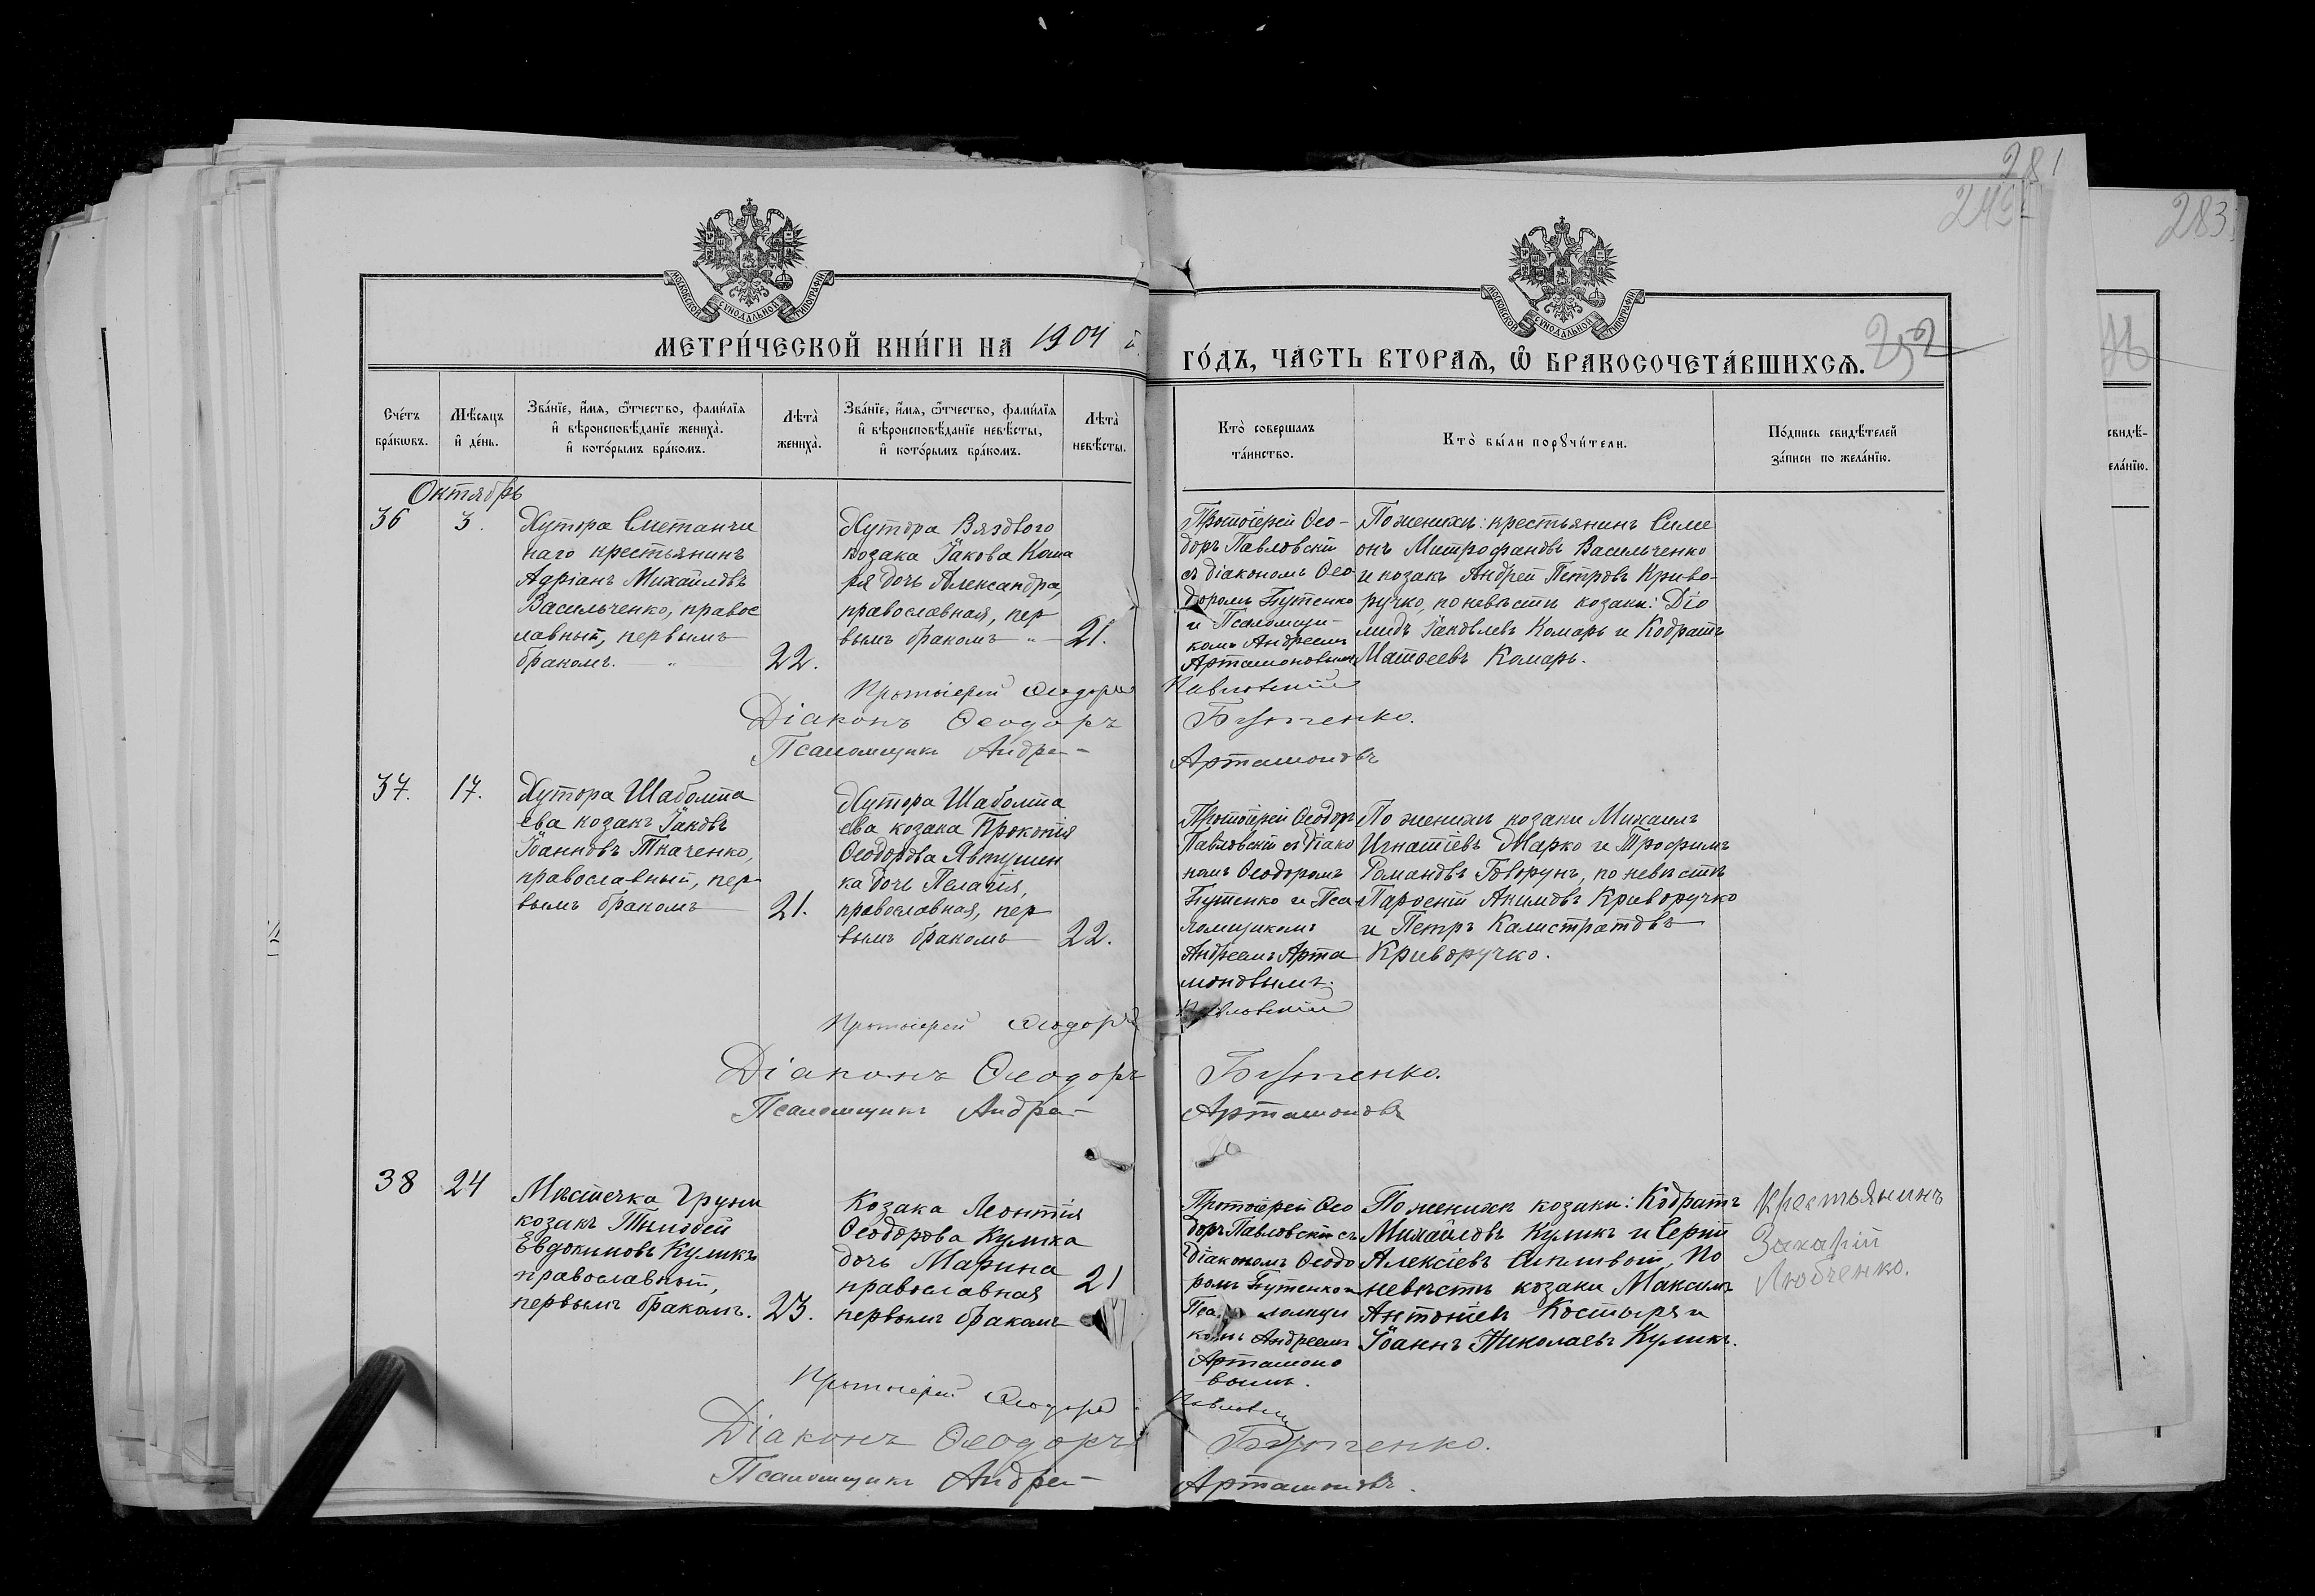 281
283
252
МОСКОВСКОЙ СѴНОДАЛЬНОЙ ТИПОГРАФІИ
МОСКОВСКОЙ СѴНОДАЛЬНОЙ ТИПОГРАФІИ
МЕТРИ́ЧЕСКОЙ КНИ́ГИ НА 1904 г.
ГО́ДЪ, ЧА́СТЬ ВТОРАѦ, Ѡ҆ БРАКОСОЧЕТА́ВШИХСѦ.
Сче́тъ
бра́кѡвъ.
Мѣ́сяцъ
и҆ де́нь.
Зва́нїе, и҆́мѧ, ѻ҆́тчество, фами́лїѧ
и҆ вѣроисповѣ́данїе жениха̀.
и҆ кото́рымъ бра́комъ.
Лѣта̀
жениха̀.
Зва́нїе, и҆́мѧ, ѻ҆́тчество, фами́лїѧ
и҆ вѣроисповѣ́данїе невѣ́сты,
и҆ кото́рымъ бра́комъ.
Лѣта̀
невѣ́сты.
Кто̀ соверша́лъ
та́инство.
Кто̀ бы́ли порꙋчи́тели.
По́дпись свидѣ́телей
за́писи по жела́нїю.
свидѣ́-
ела́нїю.
Октябрь
36
3.
Хутора Сметанчи
наго крестьянинъ
Адріанъ Михайловъ
Васильченко, правос
лавный, первымъ
бракомъ. „
22.
Хутора Вязового
козака Іакова Кома
ря дочь Александра,
православная, пер
вымъ бракомъ „
21.
Протоіерей Ѳео-
доръ Павловскій
съ діакономъ Ѳео-
доромъ Бутенко
и Псаломщи-
комъ Андреемъ
Артамоновымъ
По женихѣ: крестьянинъ Симе
онъ Митрофановъ Васильченко
и козакъ Андрей Петровъ Криво-
ручко, по невѣстѣ козаки: Діо
мидъ Іаковлевъ Комарь и Кодратъ
Матѳеевъ Комарь.
Протоіерей Ѳеодоръ Павловскій
Діаконъ Ѳеодоръ Бутенко.
Псаломщикъ Андрей Артамоновъ
37.
17.
Хутора Шаболта
ева козакъ Іаковъ
Іоанновъ Ткаченко,
православный, пер
вымъ бракомъ
21.
Хутора Шаболта
ева козака Прокопія
Ѳеодорова Явтушен
ка дочь Пелагія,
православная, пер
вымъ бракомъ
22.
Протоіерей Ѳеодоръ
Павловскій съ діако
номъ Ѳеодоромъ
Бутенко и Пса
ломщикомъ
Андреемъ Арта
моновымъ.
По женихѣ козаки Михаилъ
Игнатіевъ Марко и Трофимъ
Романовъ Говорунъ, по невѣстѣ
Парѳеній Акимовъ Криворучко
и Петръ Калистратовъ
Криворучко.
Протоіерей Ѳеодоръ Павловскій
Діаконъ Ѳеодоръ Бутенко.
Псаломщикъ Андрей Артамоновъ
38
24
Мѣстечка Груни
козакъ Тимоѳей
Евдокимовъ Куликъ
православный,
первымъ бракомъ.
23.
Козака Леонтія
Ѳеодорова Кулика
дочь Марина
православная
первымъ бракомъ
21
Протоіерей Ѳео
доръ Павловскій съ
діакономъ Ѳеодо
ромъ Бутенко и
Пса ломщи
комъ Андреемъ
Артамоно
вымъ.
По женихѣ козаки: Кодратъ
Михайловъ Куликъ и Сергій
Алексіевъ По
невѣстѣ козаки Максимъ
Антоніевъ Костыря и
Іоаннъ Николаевъ Куликъ.
Крестьянинъ
Захарій
Любченко.
Протоіерей Ѳеодоръ Павловскій
Діаконъ Ѳеодоръ Бутенко.
Псаломщикъ Андрей Артамоновъ.